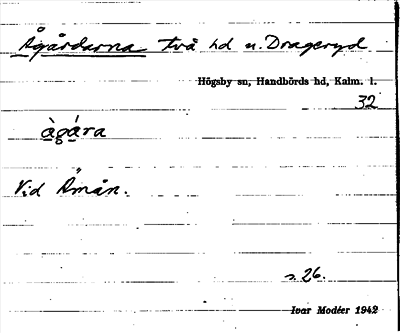 Ågårdarna två hd u. Drageryd
Högsby sn, Handbörds hd, Kalm. l.
32
àgára
Vid Åmån.
s. 26.
Ivar Modéer 1942